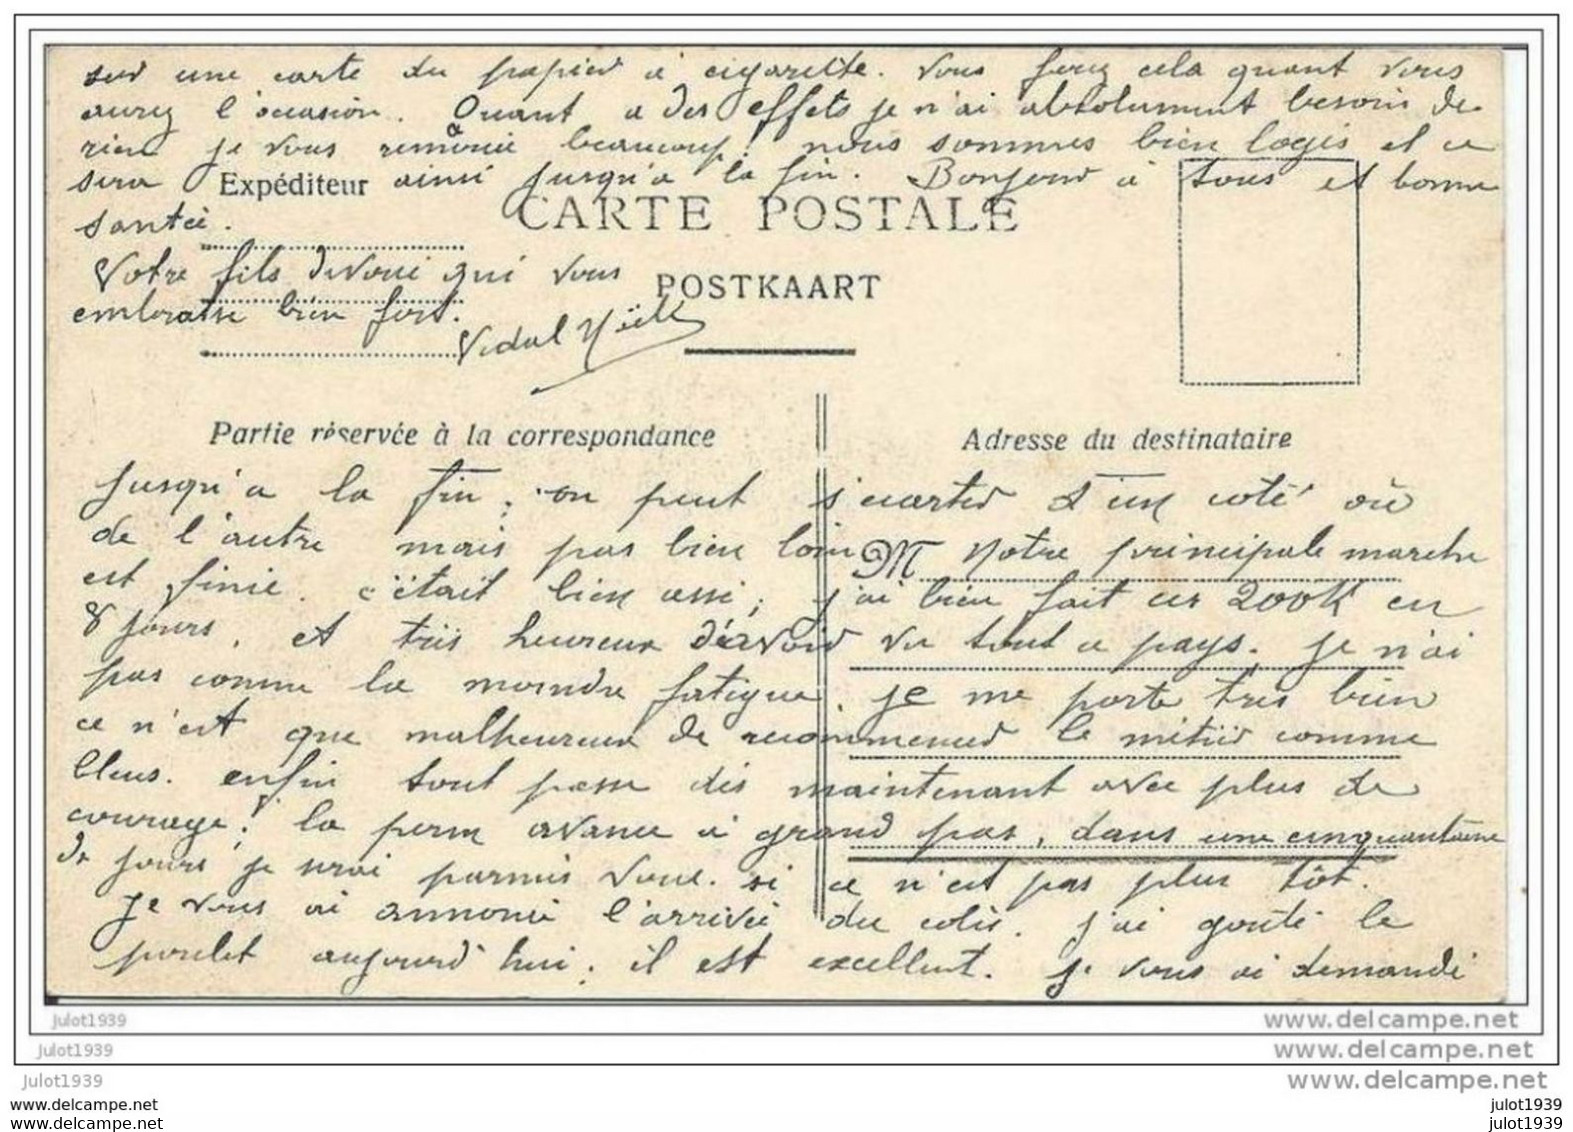 sur une carte du papier à cigarette. Vous ferez cela quant vous
aurez l'occasion. Quant a des effets je n'ai absolument besoin de
rien je vous remercie beaucoup; nous sommes bien logés et ce
sera ainsi jusqu'a la fin. Bonjour à tous et bonne
Expéditeur
santée.
CARTE POSTALE
Votre fils devoué qui vous
POSTKAART
embrasse bien fort.
Vidal
Partie réservée à la correspondance
Adresse du destinataire
Jusqu'a la fin, on peut s'ecarter d'un coté où
de l'autre mais pas bien loin M Notre principale marche
est finie. c'était bien assé; j'ai bien fait ces 200K en
8 jours, et très heureux d'avoir vu tout ce pays. Je n'ai
pas comme la moindre fatigue. je me porte très bien
ce n'est que malheureux de recommencer le métier comme
bleus. enfin tout passe dès maintenant avec plus de
courage; la perm avance à grand pas, dans une cinquantaine
de jours je serai parmis vous. si ce n'est pas plus tôt.
Je vous ai annoncé l'arrivée du colis. j'ai gouté le
poulet aujourd'hui. il est excellent. Je vous ai demandé
julot1939
www.delcampe.net
julot1939
www.delcampe.net
julot1939
www.delcampe.net
www.delcampe.net
julot1939
www.delcampe.net
julot1939